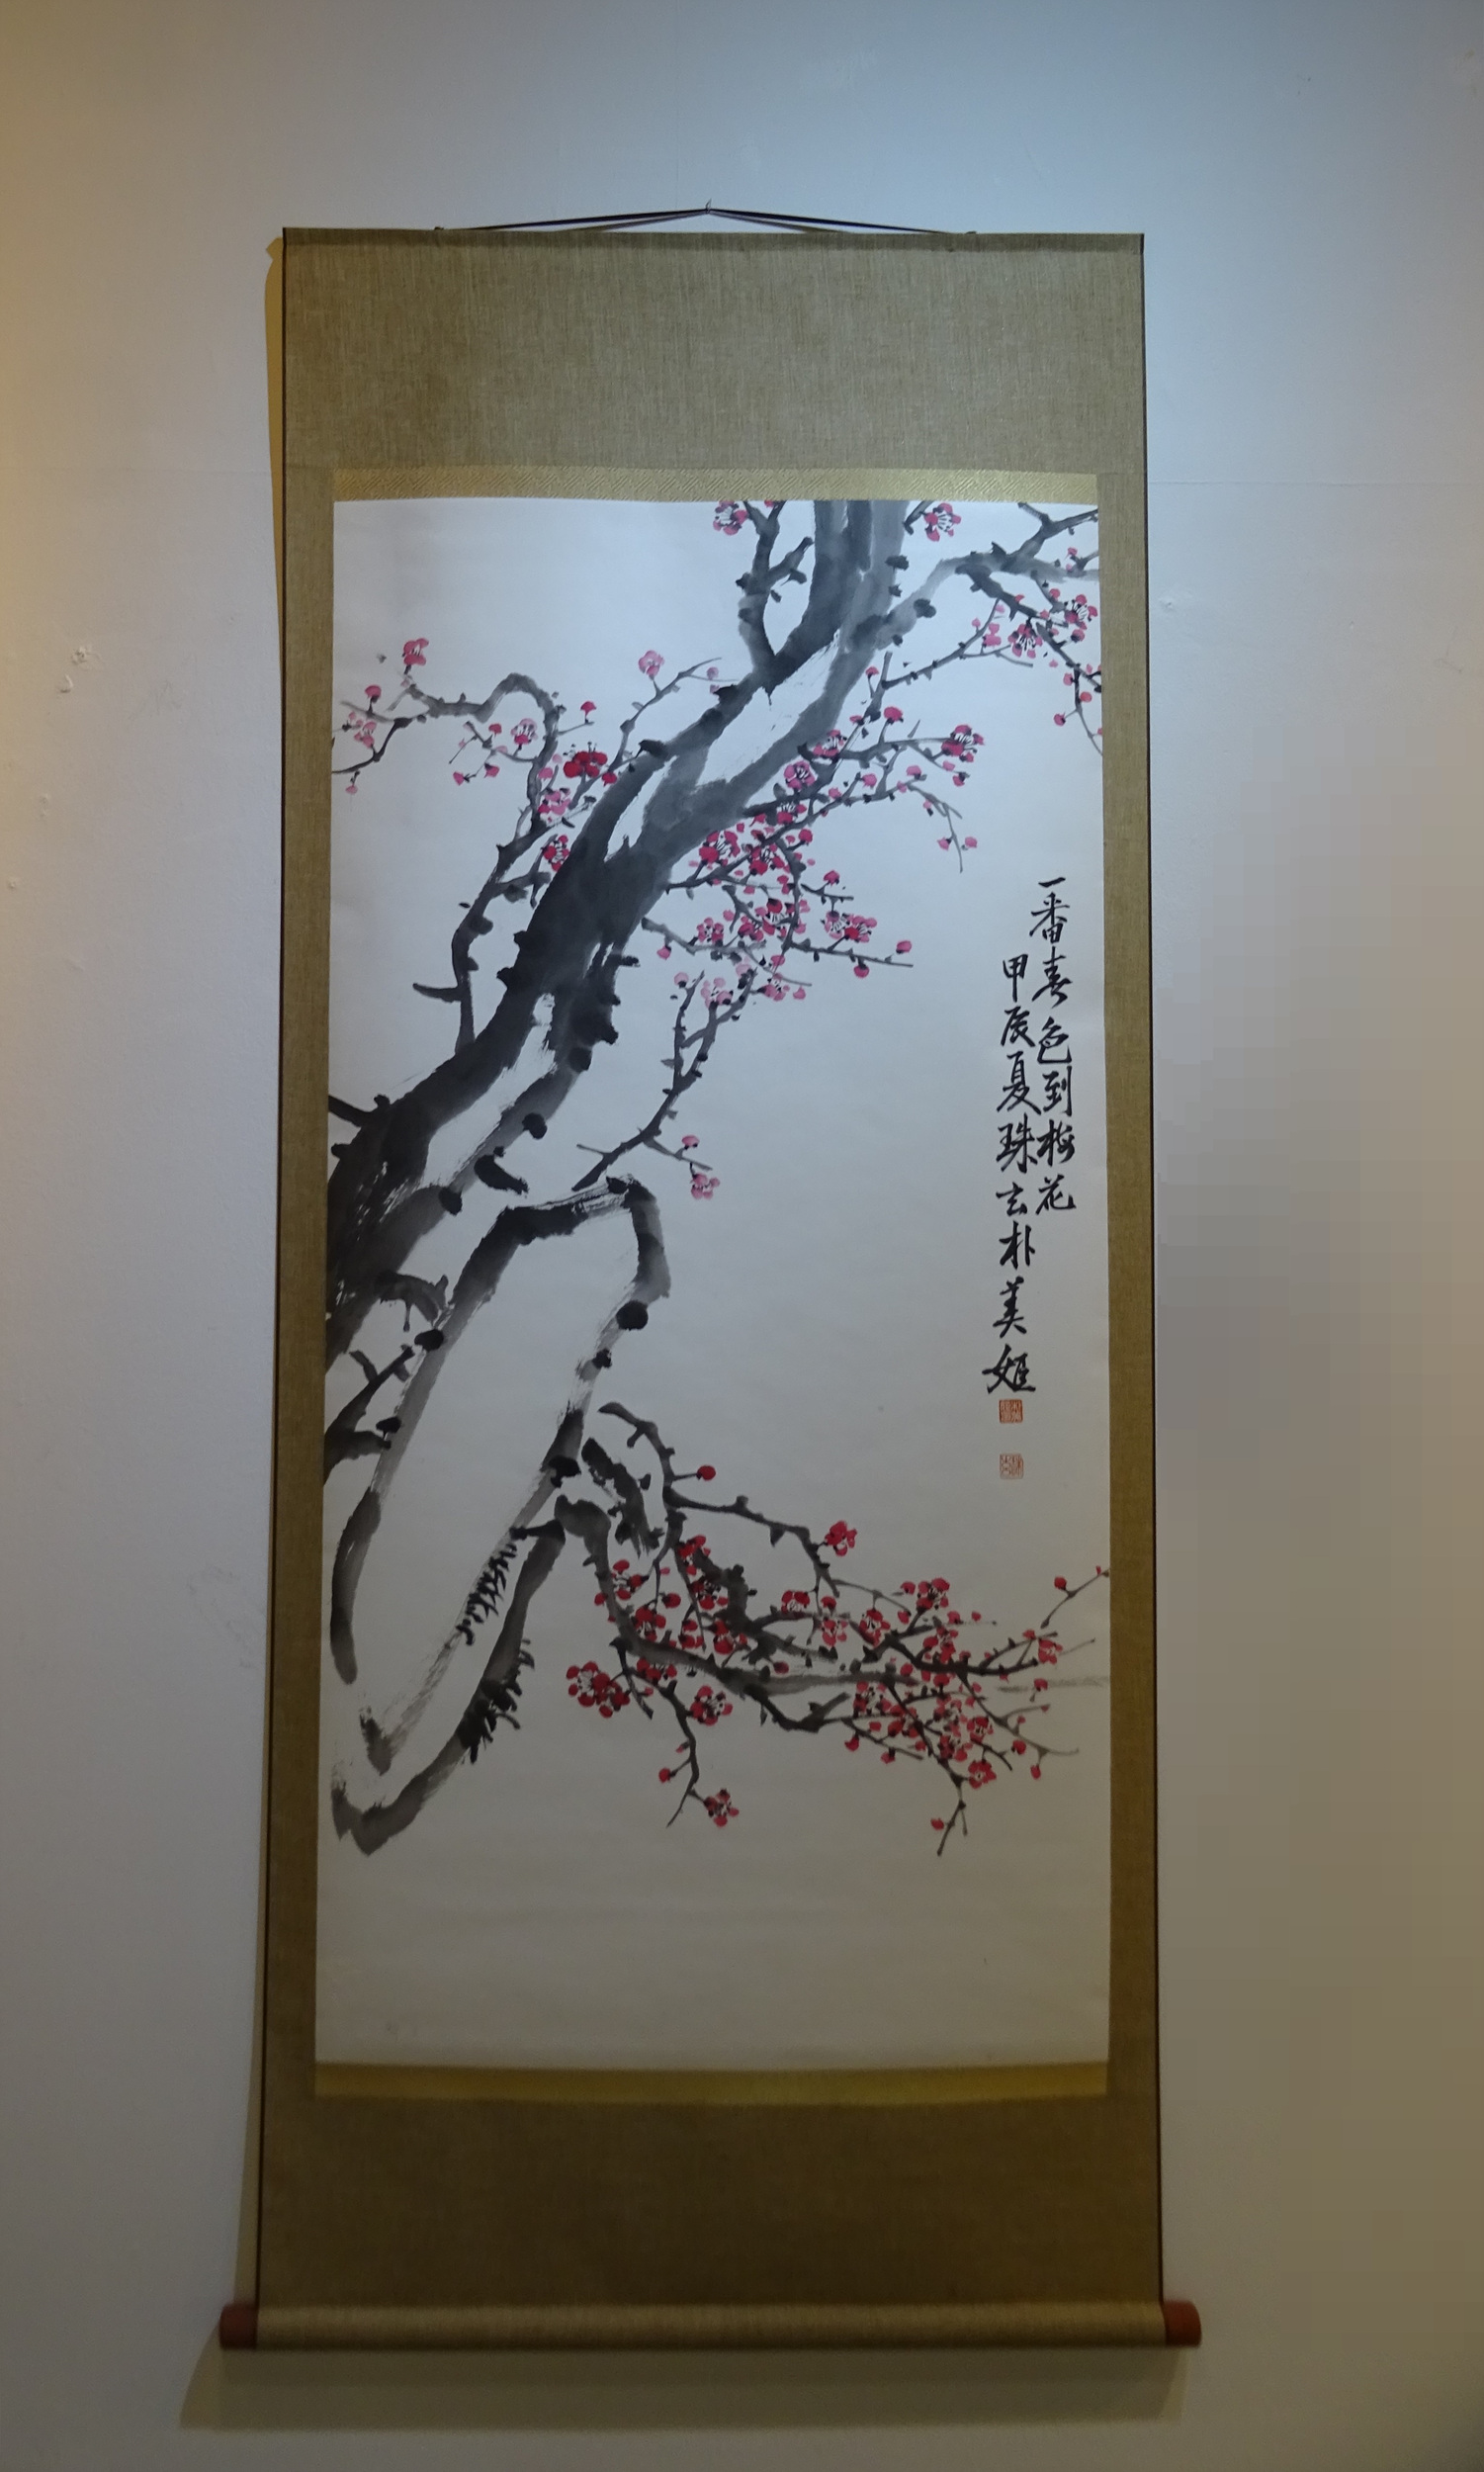 一番春色到梅花
甲辰夏珠玄朴美姬